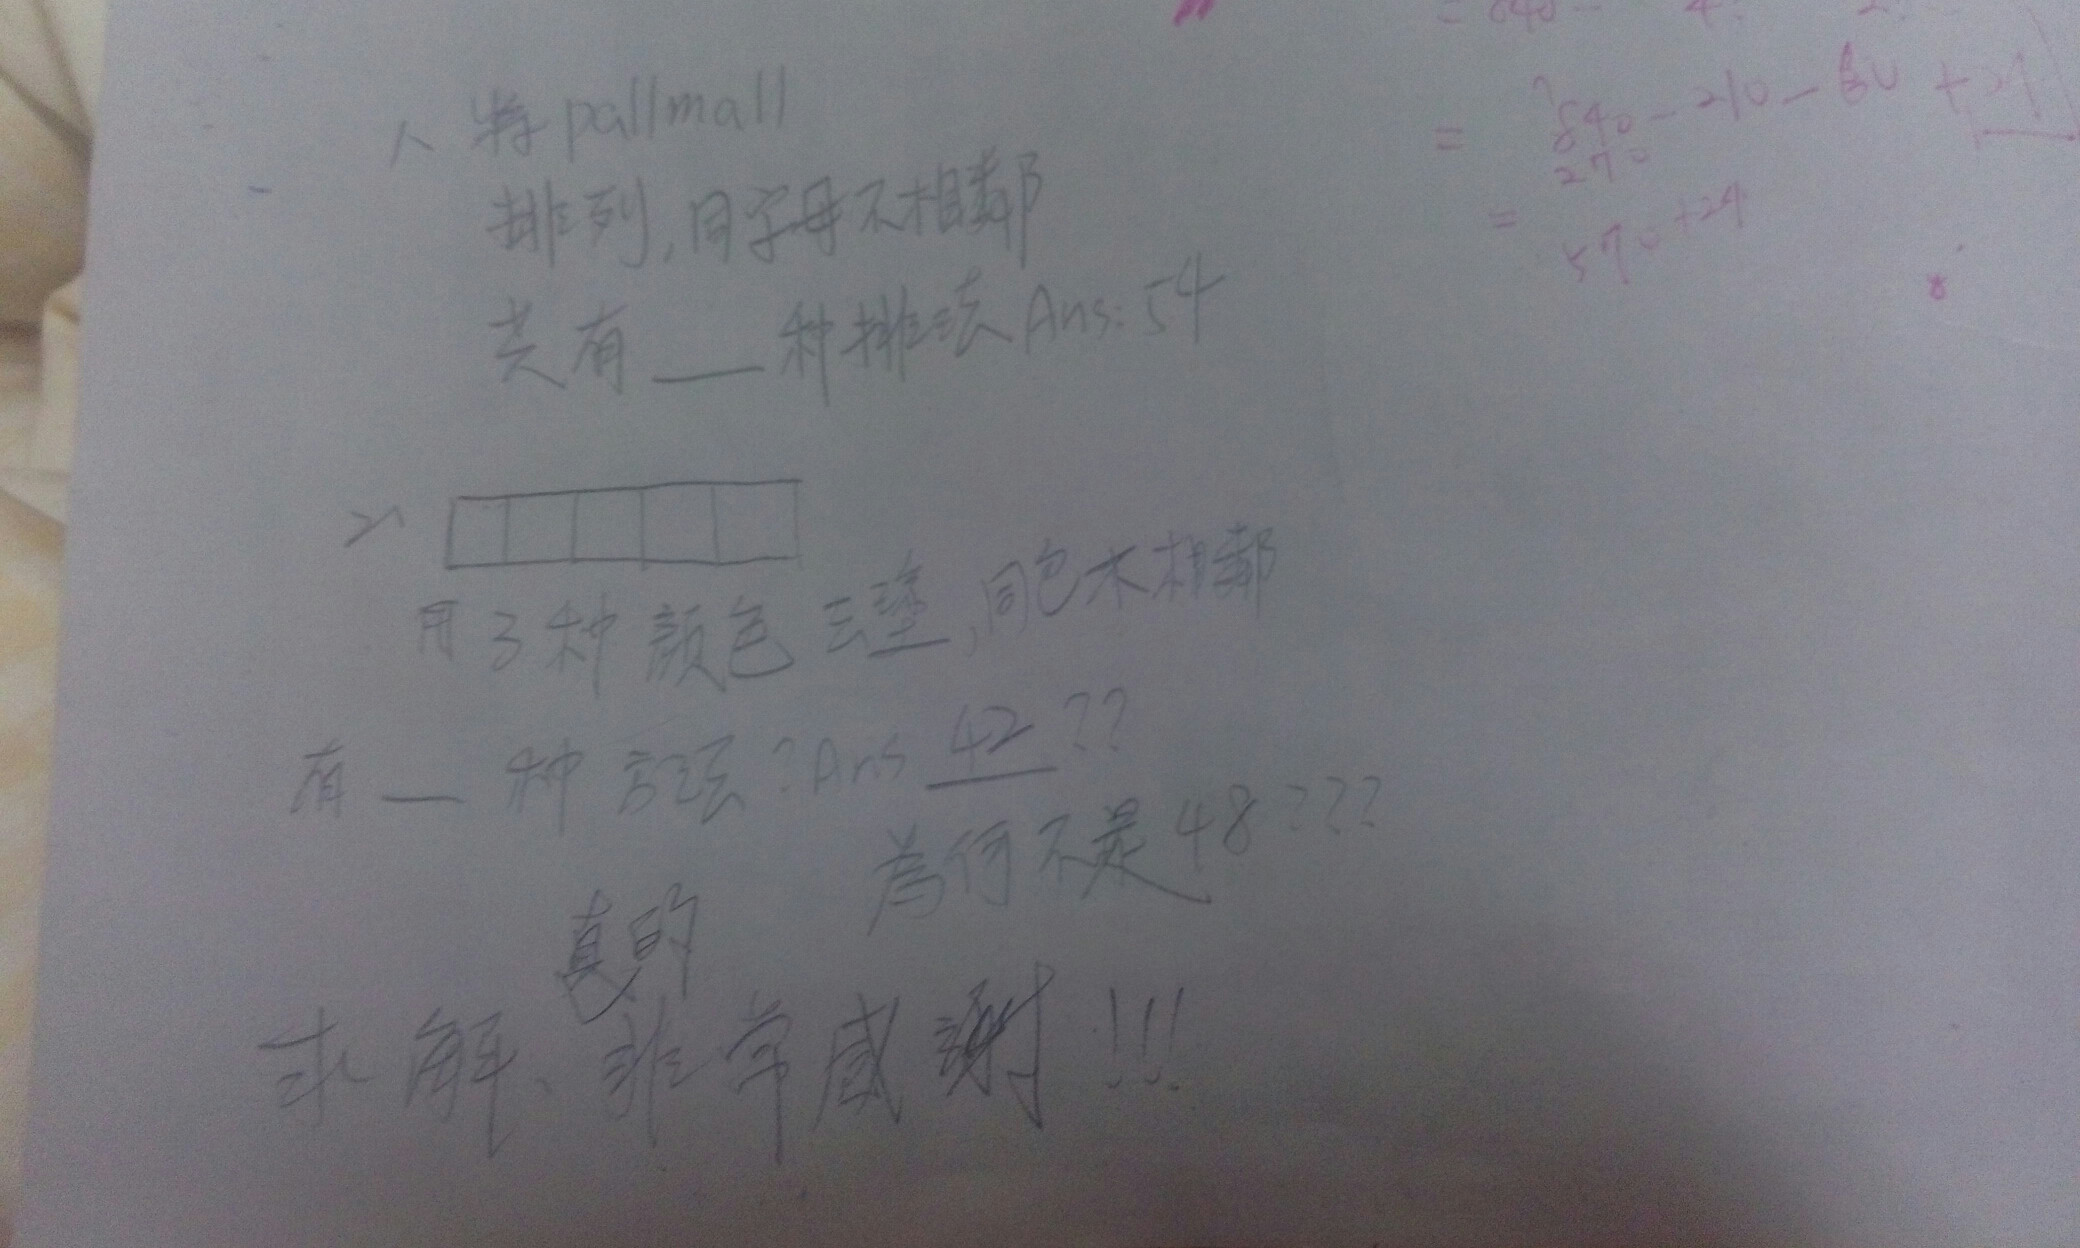 1、將pallmall
排列,同字母不相鄰
共有 __ 种排法 Ans:54
2、
用3种顏色去塗,同色不相鄰
有 __ 种方法?Ans 42??
為何不是48???
真的
求解、非常感謝!!!
= 840-210-60+24
270
= 570+24